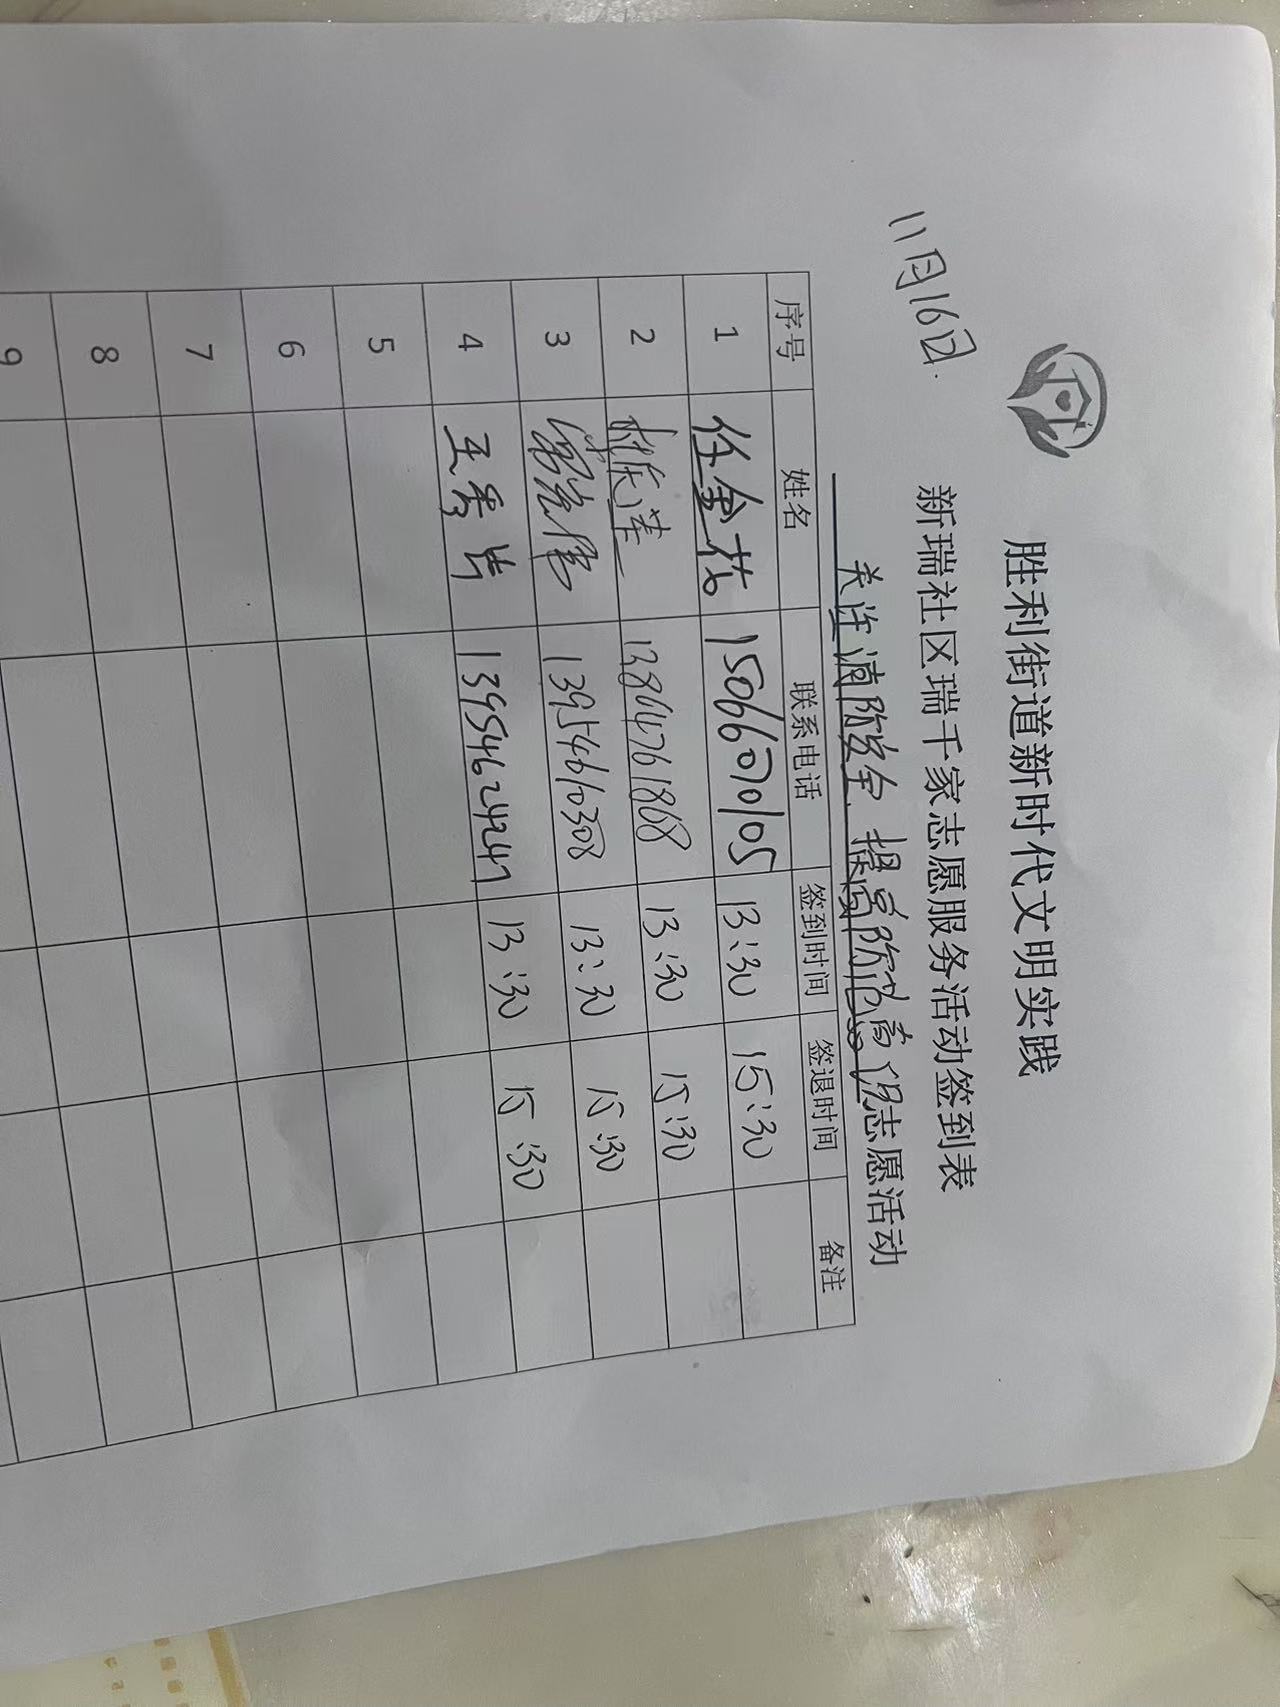 11月16日.
胜利街道新时代文明实践
新瑞社区瑞千家志愿服务活动签到表
关注消防安全 提高防范意识志愿活动
序号 姓名 联系电话 签到时间 签退时间 备注
1 任金花 15066070105 13:30 15:30
2 13:30 15:30
3 13954610308 13:30 15:30
4 王秀芹 13954624247 13:30 15:30
5
6
7
8
9